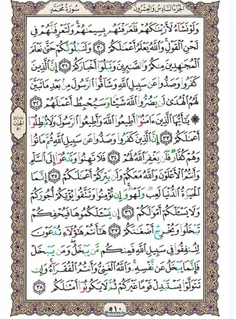 الجزء السادس والعشرون سورة محمد
ولو نشاء لأريناكهم فلعرفتهم بسيماهم ولتعرفنهم في
لحن القول والله يعلم أعمالكم ٣٠ ولنبلونكم حتى نعلم
المجاهدين منكم والصابرين ونبلوا أخباركم ٣١ إن الذين
كفروا وصدوا عن سبيل الله وشاقوا الرسول من بعد ما تبين
لهم الهدى لن يضروا الله شيئا وسيحبط أعمالهم ٣٢
يا أيها الذين آمنوا أطيعوا الله وأطيعوا الرسول ولا تبطلوا
أعمالكم ٣٣ إن الذين كفروا وصدوا عن سبيل الله ثم ماتوا
وهم كفار فلن يغفر الله لهم ٣٤ فلا تهنوا وتدعوا إلى السلم
وأنتم الأعلون والله معكم ولن يتركم أعمالكم ٣٥ إنما
الحياة الدنيا لعب ولهو وإن تؤمنوا وتتقوا يؤتكم أجوركم
ولا يسألكم أموالكم ٣٦ إن يسألكموها فيحفكم
تبخلوا ويخرج أضغانكم ٣٧ ها أنتم هؤلاء تدعون
لتنفقوا في سبيل الله فمنكم من يبخل ومن يبخل
فإنما يبخل عن نفسه والله الغني وأنتم الفقراء وإن
تتولوا يستبدل قوما غيركم ثم لا يكونوا أمثالكم ٣٨
٥١٠